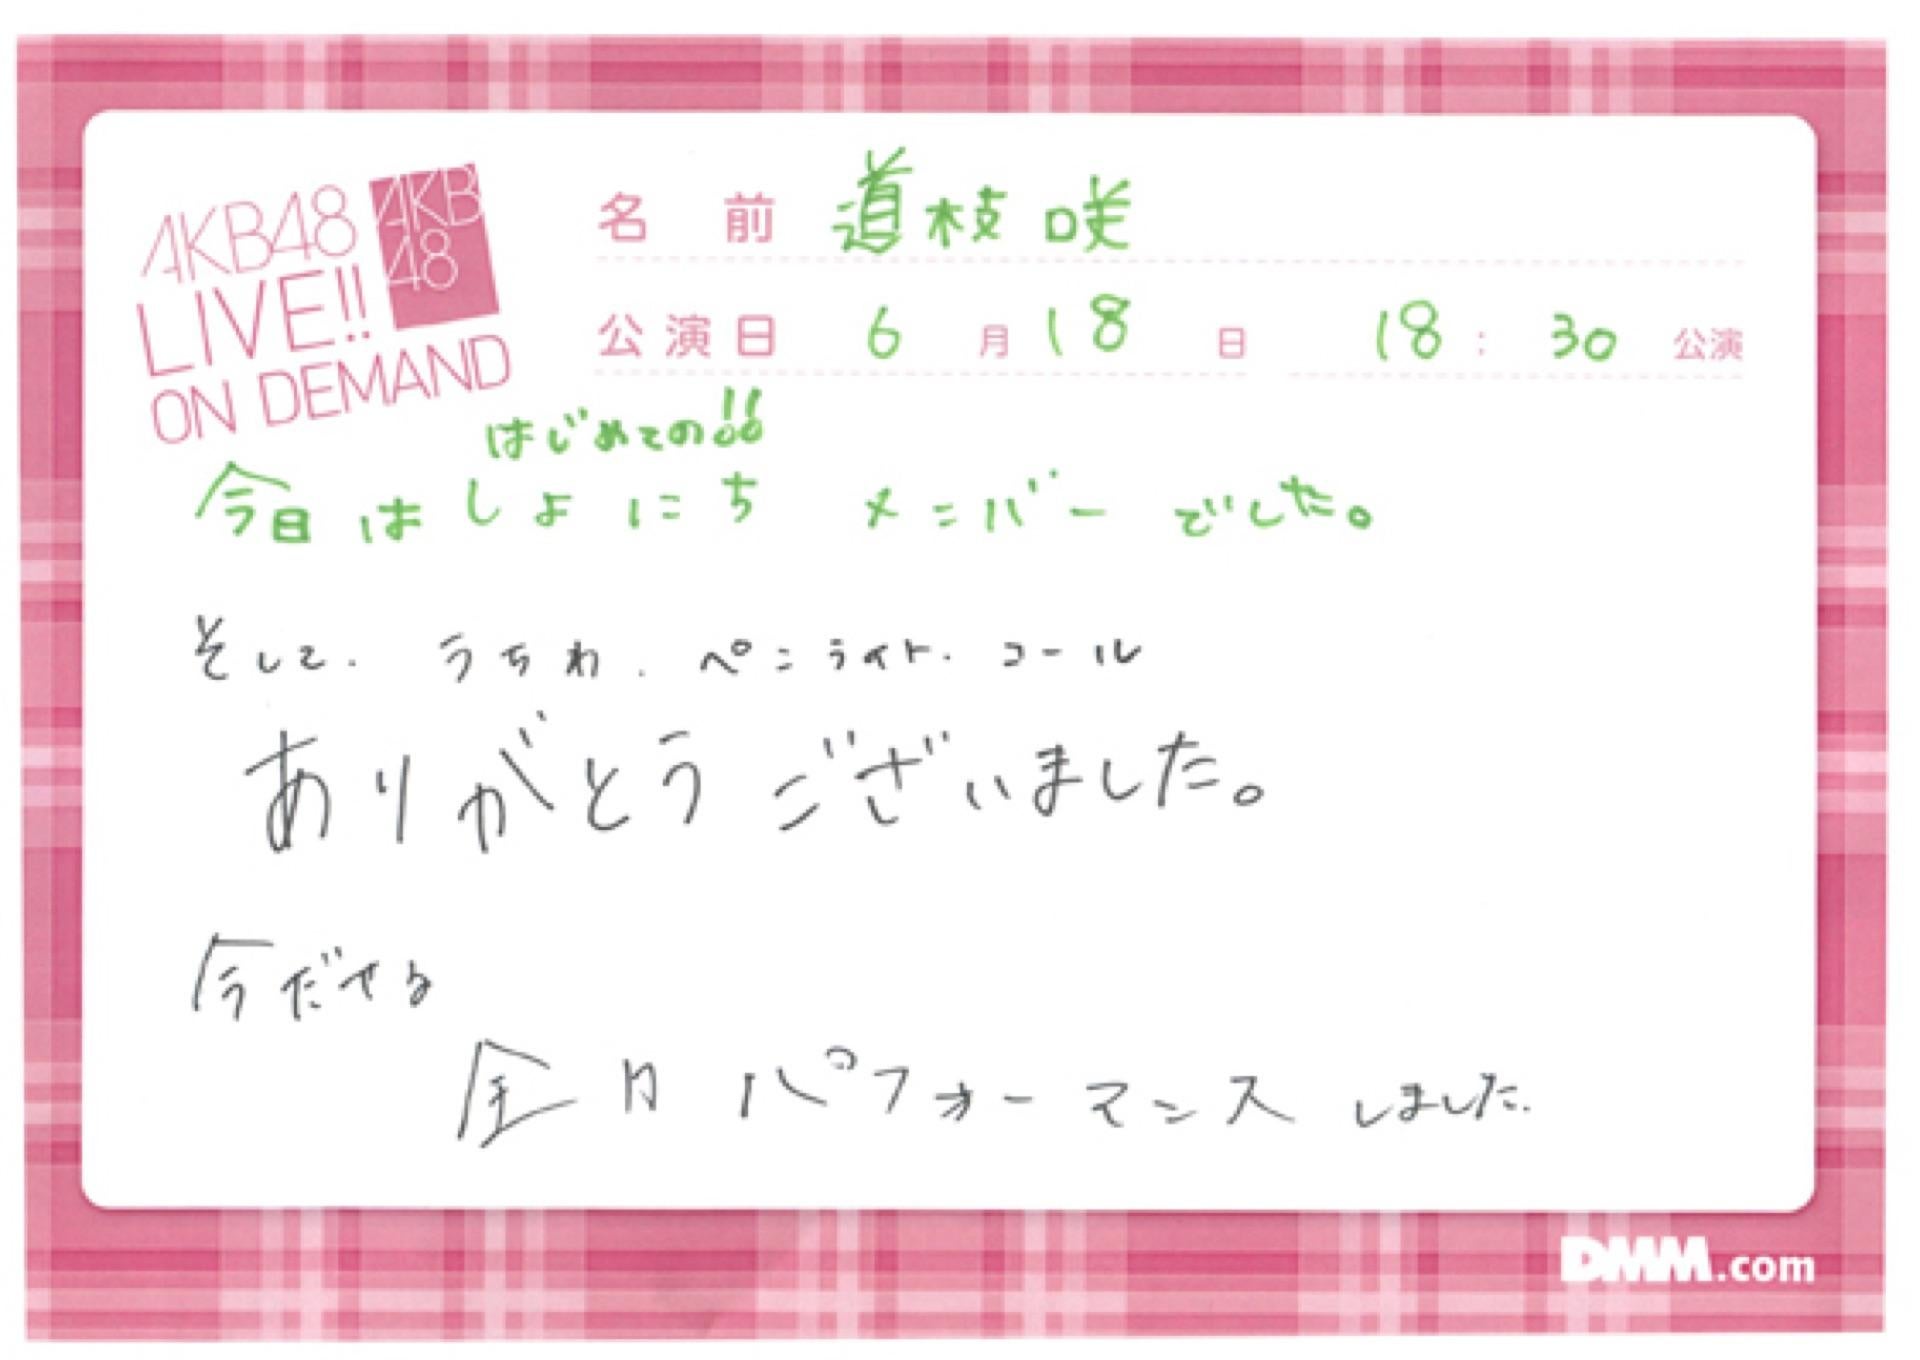 AKB48
LIVE!!
ON DEMAND
AKB
48
名前 道枝 咲
公演日 6月18日 18:30公演
はじめての!!
今日は しょにち メンバーでした。
そして、うちわ、ペンライト、コール
ありがとうございました。
今だせる
全力パフォーマンスしました。
DMM.com